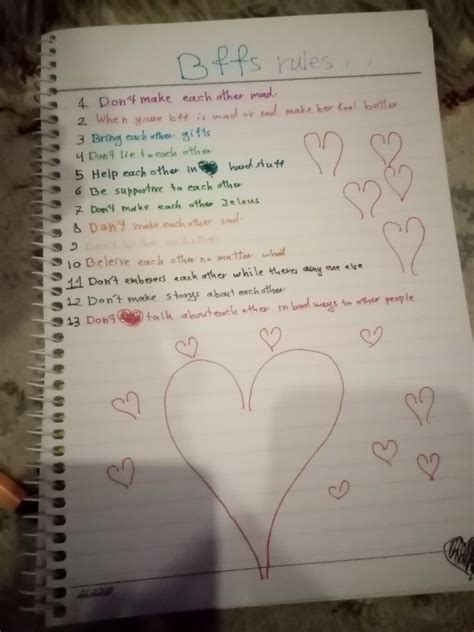 Bffs rules...
1. Don't make each other mad.
2 When youre bff is mad or sad make her feel better
3 Bring each other gifts
4 Don't lie to each other
5 Help each other in hard stuff
6 Be supportive to each other
7 Don't make each other Jelous
8 Don't make each other sad.
9 each other
10 Beleive each other no matter what
11 Don't emberess each other while theres any one else
12 Don't make storys about each other
13 Don't talk about each other in bad ways to other people